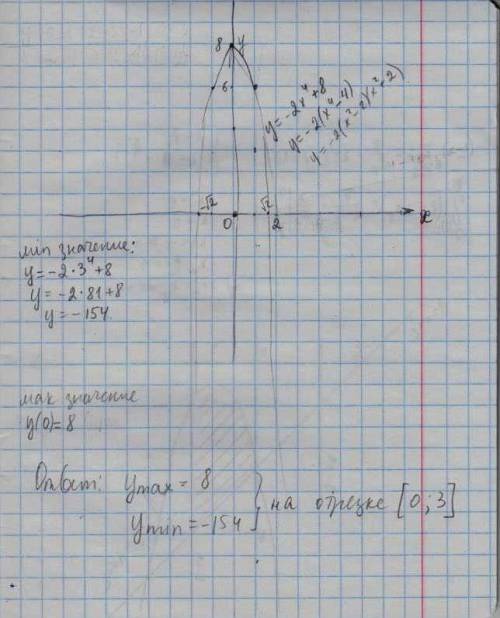 8 y
6
y=-2x⁴+8
y=-2(x⁴-4)
y=-2(x²-2)(x²+2)
-√2 0 √2 2 x
min значение:
y=-2·3⁴+8
y=-2·81+8
y=-154
мах значение
y(0)=8
Ответ: ymax = 8
ymin = -154 } на отрезке [0;3]